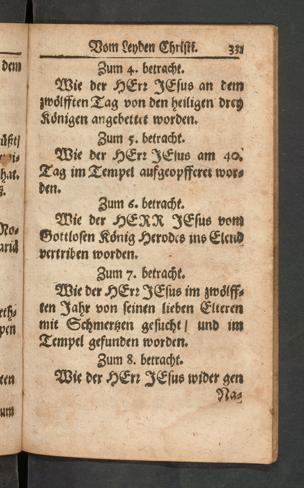 Vom Leyden Christi. 331
Zum 4. betracht.
Wie der HErr JEsus an dem
zwölfften Tag von den heiligen drey
Königen angebettet worden.
Zum 5. betracht.
Wie der HErr JEsus am 40.
Tag im Tempel aufgeopfferet wor-
den.
Zum 6. betracht.
Wie der HERR JEsus vom
Gottlosen König Herodes ins Elend
vertriben worden.
Zum 7. betracht.
Wie der HErr JEsus im zwölff-
ten Jahr von seinen lieben Elteren
mit Schmertzen gesucht / und im
Tempel gefunden worden.
Zum 8. betracht.
Wie der HErr JEsus wider gen
Na-
dem
hat.
um